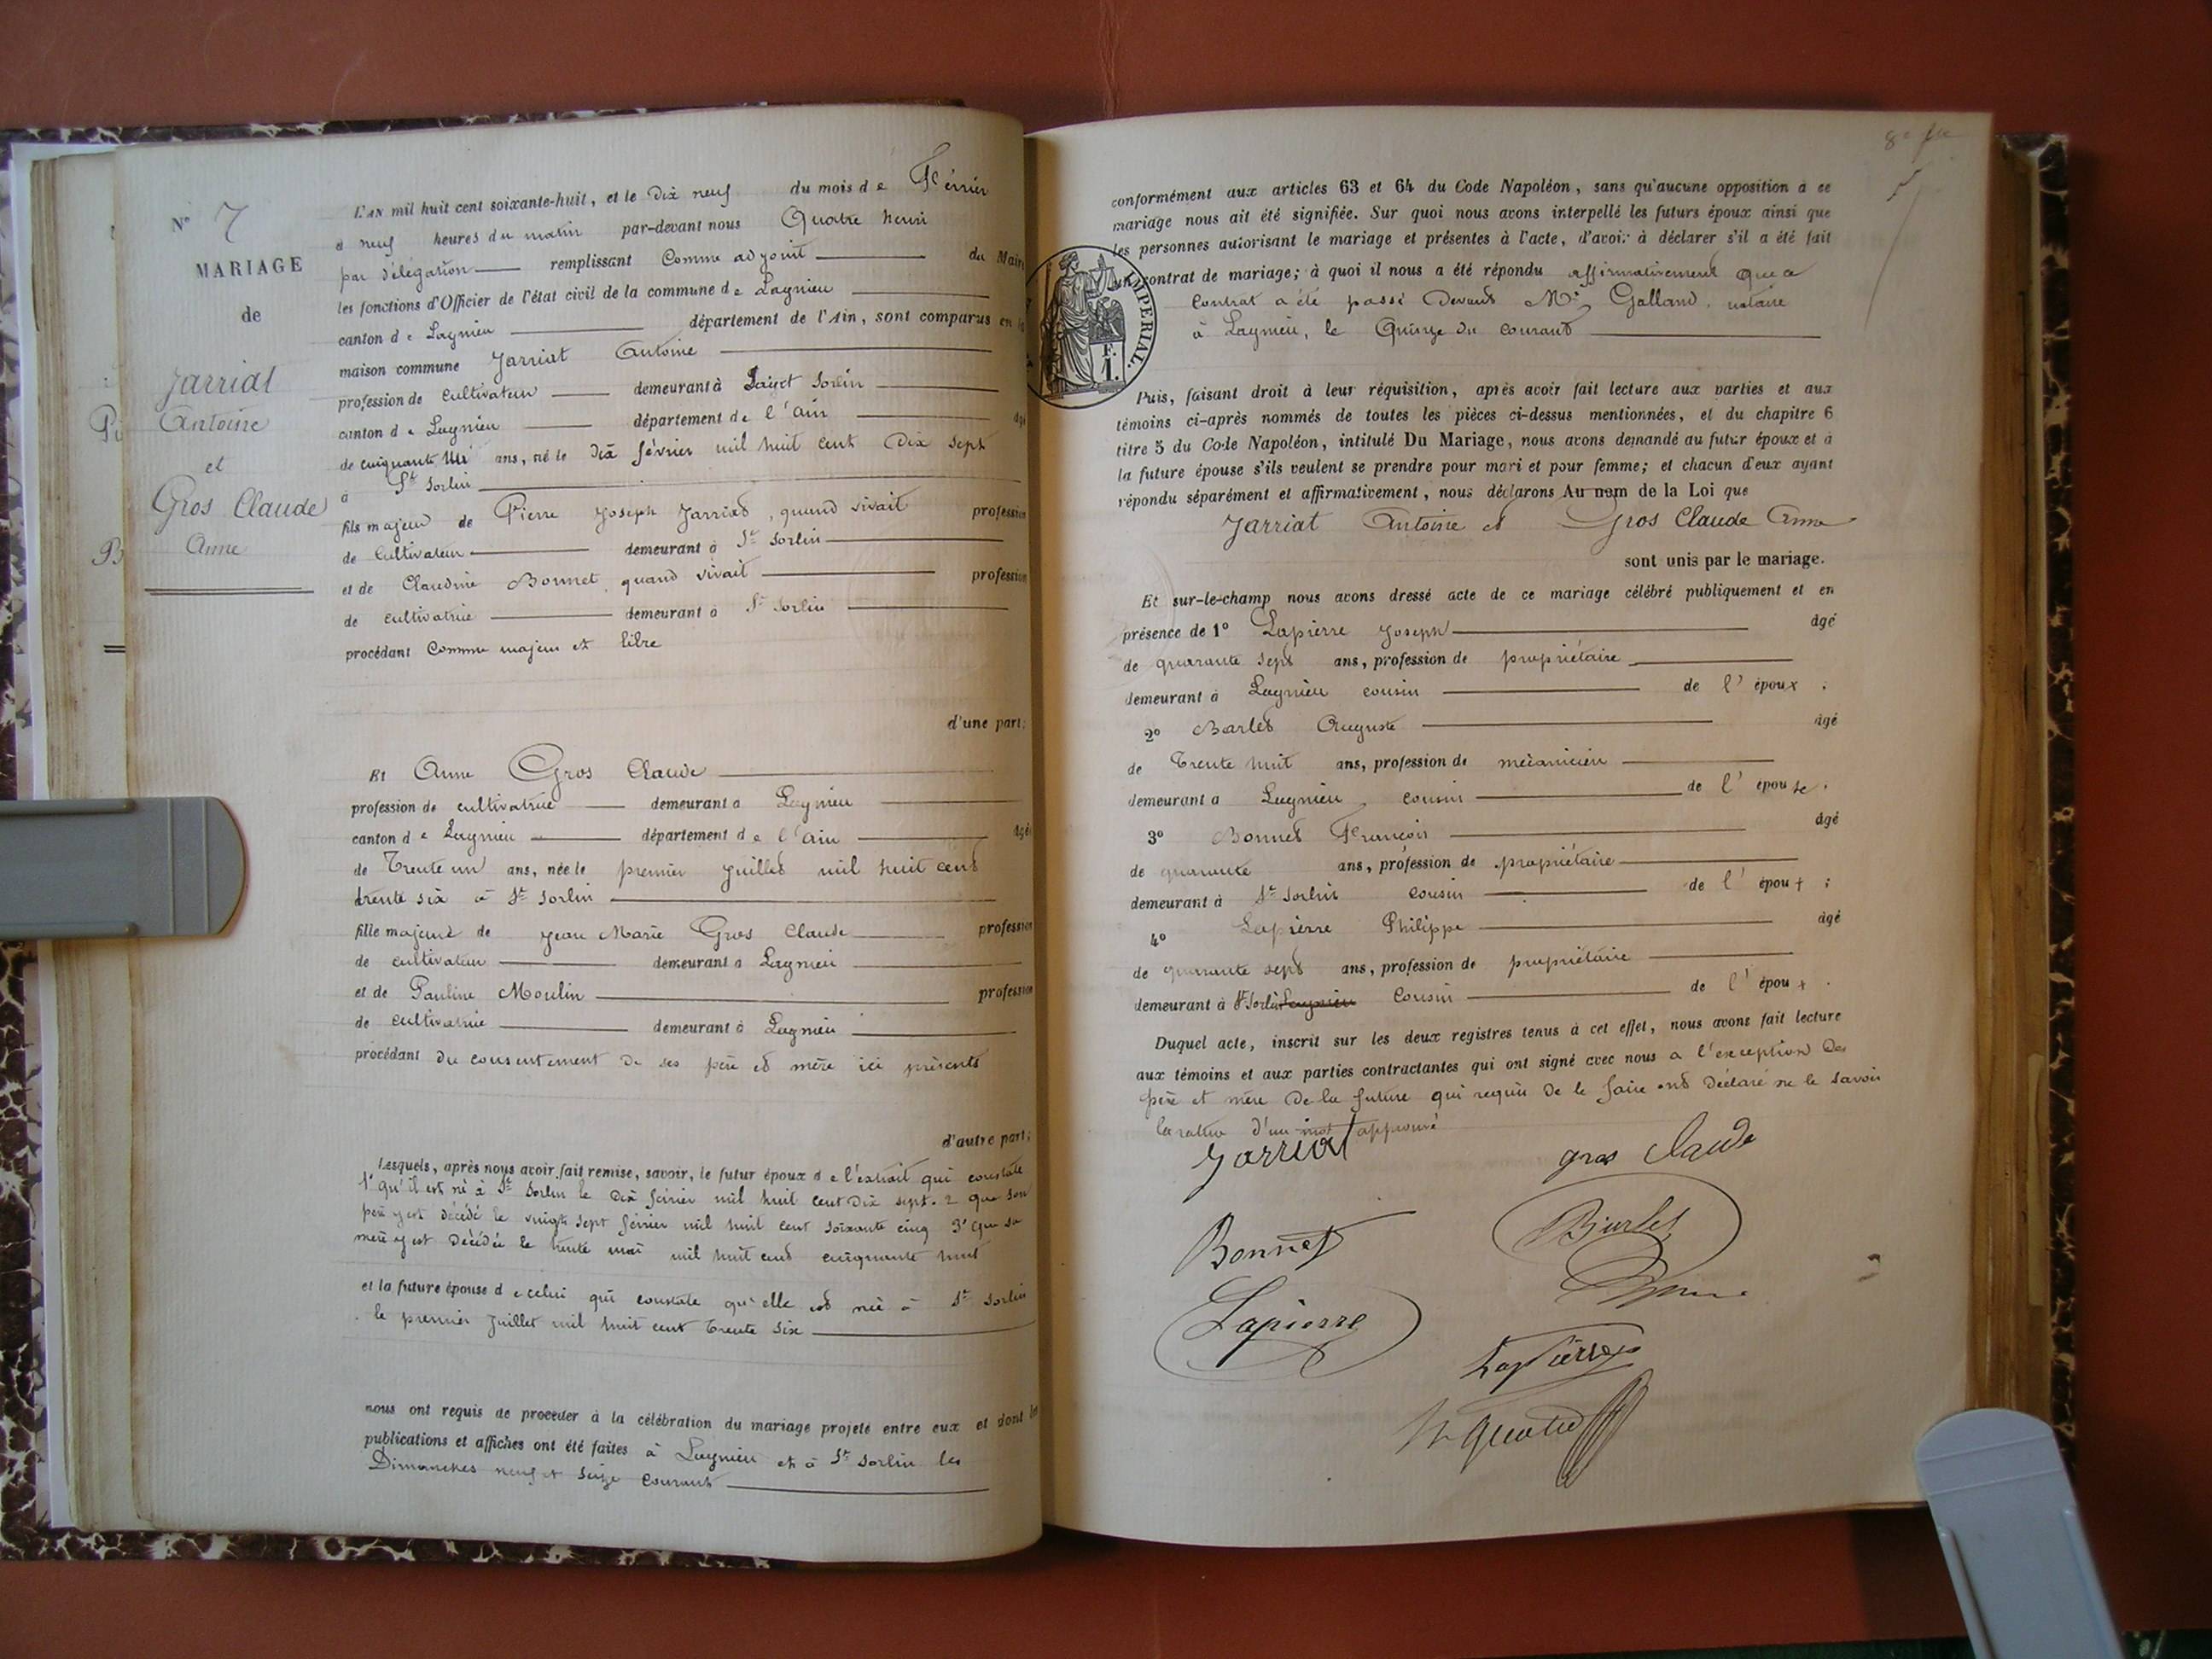 N° 7
MARIAGE
de
Jarriat
Antoine
et
Gros Claude
Anne
L'AN mil huit cent soixante-huit, et le Dix neuf du mois de Février
à neuf heures du matin par-devant nous Quatre henri
par délégation remplissant Comme adjoint du Maire
les fonctions d'Officier de l'état civil de la commune de Lagnieu
canton de Lagnieu département de l'Ain, sont comparus en la
maison commune Jarriat Antoine
profession de Cultivateur demeurant à Saint Sorlin
canton de Lagnieu département de l'Ain âgé
de cinquante un ans, né le dix février mil huit cent Dix sept
à St Sorlin
fils majeur de Pierre Joseph Jarriat, quand vivait profession
de Cultivateur demeurant à St Sorlin
et de Claudine Bonnet, quand vivait profession
de cultivatrice demeurant à St Sorlin
procédant Comme majeur et libre
d'une part;
Et Anne Gros Claude
profession de cultivatrice demeurant à Lagnieu
canton de Lagnieu département de l'Ain âgée
de Trente un ans, née le premier juillet mil huit cent
trente six à St Sorlin
fille majeure de Jean Marie Gros Claude profession
de cultivateur demeurant à Lagnieu
et de Pauline Moulin profession
de cultivatrice demeurant à Lagnieu
procédant du consentement de ses père et mère ici présents
d'autre part;
Lesquels, après nous avoir fait remise, savoir, le futur époux de l'extrait qui constate
1° qu'il est né à St Sorlin le dix février mil huit cent Dix sept. 2° que son
père y est décédé le vingt sept février mil huit cent soixante cinq 3° que sa
mère y est décédée le trente mai mil huit cent cinquante huit
et la future épouse de celui qui constate qu'elle est née à St Sorlin
le premier juillet mil huit cent trente six
nous ont requis de procéder à la célébration du mariage projeté entre eux et dont les
publications et affiches ont été faites à Lagnieu et à St Sorlin les
Dimanches neuf et seize courant
conformément aux articles 63 et 64 du Code Napoléon, sans qu'aucune opposition à ce
mariage nous ait été signifiée. Sur quoi nous avons interpellé les futurs époux ainsi que
les personnes autorisant le mariage et présentes à l'acte, d'avoir à déclarer s'il a été fait
un contrat de mariage; à quoi il nous a été répondu affirmativement que
contrat a été passé devant Me Galland, notaire
à Lagnieu, le Quinze du courant
IMPERIAL.
F.
1.
Puis, faisant droit à leur réquisition, après avoir fait lecture aux parties et aux
témoins ci-après nommés de toutes les pièces ci-dessus mentionnées, et du chapitre 6
titre 5 du Code Napoléon, intitulé Du Mariage, nous avons demandé au futur époux et à
la future épouse s'ils veulent se prendre pour mari et pour femme; et chacun d'eux ayant
répondu séparément et affirmativement, nous déclarons Au nom de la Loi que
Jarriat Antoine et Gros Claude Anne
sont unis par le mariage.
Et sur-le-champ nous avons dressé acte de ce mariage célébré publiquement et en
présence de 1° Lapierre Joseph âgé
de quarante sept ans, profession de propriétaire
demeurant à Lagnieu cousin de l'époux ;
2° Barlet Auguste âgé
de Trente huit ans, profession de mécanicien
demeurant à Lagnieu, cousin de l'épouse ;
3° Bonnet François âgé
de quarante ans, profession de propriétaire
demeurant à St Sorlin cousin de l'époux ;
4° Lapierre Philippe âgé
de quarante sept ans, profession de propriétaire
demeurant à St Sorlin Lagnieu Cousin de l'époux .
Duquel acte, inscrit sur les deux registres tenus à cet effet, nous avons fait lecture
aux témoins et aux parties contractantes qui ont signé avec nous à l'exception des
père et mère de la future qui requis de le faire ont déclaré ne le savoir
la rature d'un mot approuvé
Jarriat gros Claude
Bonnet Barlet
Lapierre
Lapierre
h quatre